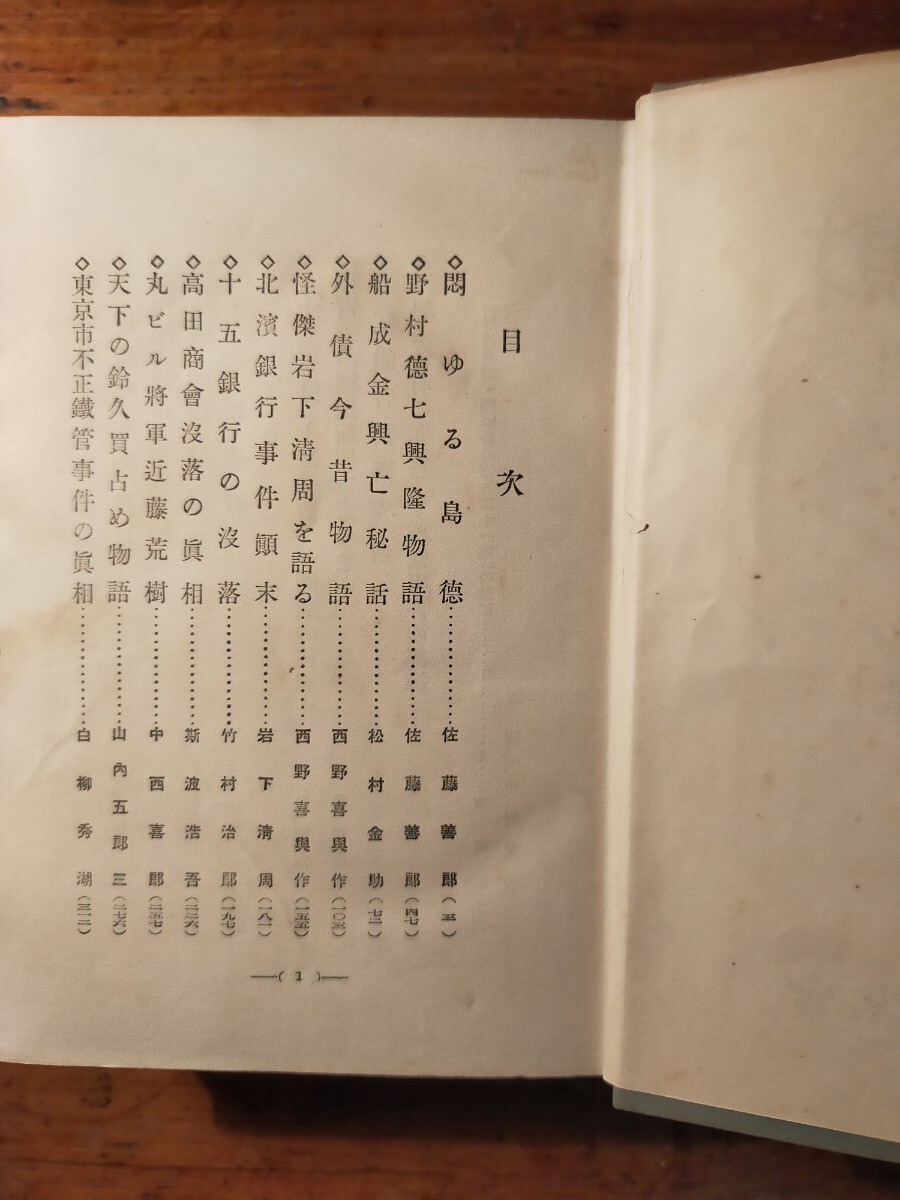 目次
◇悶ゆる島德……………佐藤善郎(三)
◇野村德七興隆物語……………佐藤善郎(四七)
◇船成金興亡秘話……………松村金助(七二)
◇外債今昔物語……………西野喜與作(一〇三)
◇怪傑岩下淸周を語る……………西野喜與作(一五五)
◇北濱銀行事件顚末……………岩下淸周(一八一)
◇十五銀行の沒落……………竹村治郞(一九七)
◇高田商會沒落の眞相……………斯波浩吾(二二六)
◇丸ビル將軍近藤荒樹……………中西喜郞(二五七)
◇天下の鈴久買占め物語……………山內五郞三(二七六)
◇東京市不正鐵管事件の眞相……………白柳秀湖(三一二)
―( 1 )―